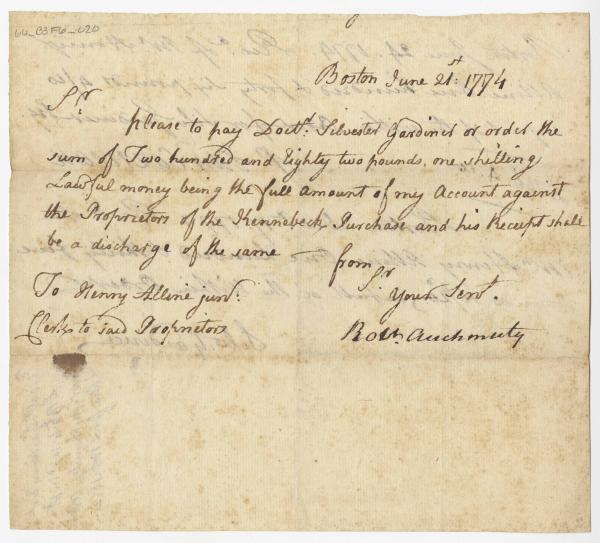 66_B3F6_020
Boston June 21st: 1774
Sr
please to pay Doctr. Silvester Gardiner or order the
sum of Two hundred and Eighty two pounds, one shilling
Lawful money being the full amount of my Account against
the Proprietors of the Kennebeck Purchase and his Receipt shall
be a discharge of the same — from
Sr
To Henry Alline junr.
Your Servt.
Clerk to said Proprietors
Robt. Auchmuty